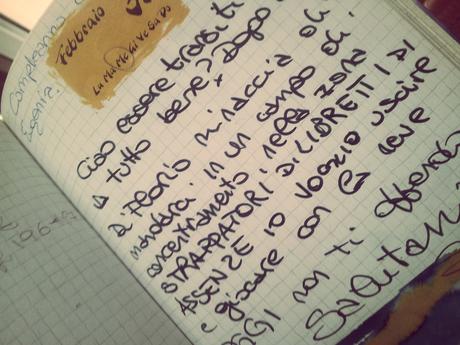 Compleanno
Eugenia
Febbraio
Ciao essere transiti
tutto bene? Dopo
minaccia di
mandarci in un campo di
concentramento nella zona
STRAPPATORI DI LIBRETTI DI
ASSENZE IO VOGLIO USCIRE
e giocare con la neve
OGGI non ti offendi
Saluta